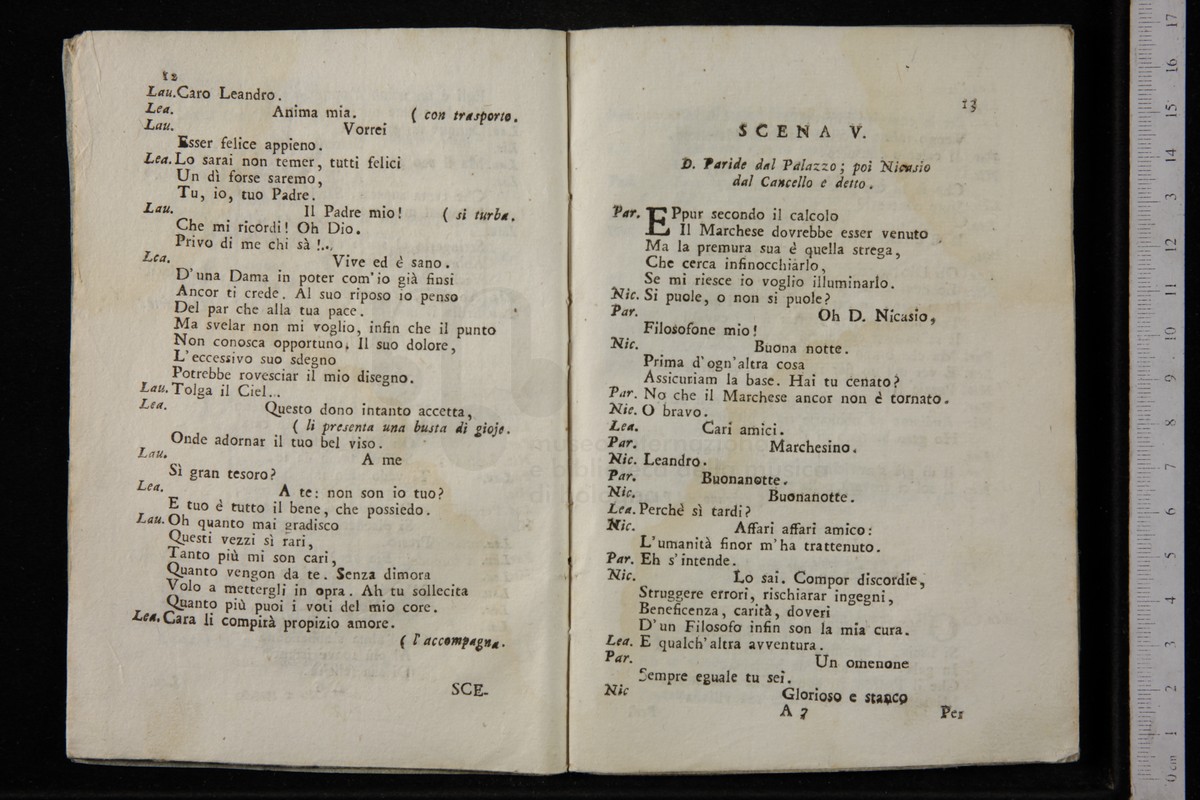 12
Lau. Caro Leandro.
Lea. Anima mia. ( con trasporto.
Lau. Vorrei
Esser felice appieno.
Lea. Lo sarai non temer, tutti felici
Un dì forse saremo,
Tu, io, tuo Padre.
Lau. Il Padre mio! ( si turba.
Che mi ricordi! Oh Dio.
Privo di me chi sà !..
Lea. Vive ed è sano.
D'una Dama in poter com'io già finsi
Ancor ti crede. Al suo riposo io penso
Del par che alla tua pace.
Ma svelar non mi voglio, infin che il punto
Non conosca opportuno. Il suo dolore,
L'eccessivo suo sdegno
Potrebbe rovesciar il mio disegno.
Lau. Tolga il Ciel...
Lea. Questo dono intanto accetta,
( li presenta una busta di gioje.
Onde adornar il tuo bel viso.
Lau. A me
Sì gran tesoro?
Lea. A te: non son io tuo?
E tuo è tutto il bene, che possiedo.
Lau. Oh quanto mai gradisco
Questi vezzi sì rari,
Tanto più mi son cari,
Quanto vengon da te. Senza dimora
Volo a mettergli in opra. Ah tu sollecita
Quanto più puoi i voti del mio core.
Lea. Cara li compirà propizio amore.
( l'accompagna.
SCE-
13
SCENA V.
D. Paride dal Palazzo; poi Nicasio
dal Cancello e detto.
Par. EPpur secondo il calcolo
Il Marchese dovrebbe esser venuto
Ma la premura sua è quella strega,
Che cerca infinocchiarlo,
Se mi riesce io voglio illuminarlo.
Nic. Si puole, o non si puole?
Par. Oh D. Nicasio,
Filosofone mio!
Nic. Buona notte.
Prima d'ogn'altra cosa
Assicuriam la base. Hai tu cenato?
Par. No che il Marchese ancor non è tornato.
Nic. O bravo.
Lea. Cari amici.
Par. Marchesino.
Nic. Leandro.
Par. Buonanotte.
Nic. Buonanotte.
Lea. Perchè sì tardi?
Nic. Affari affari amico:
L'umanità finor m'ha trattenuto.
Par. Eh s'intende.
Nic. Lo sai. Compor discordie,
Struggere errori, rischiarar ingegni,
Beneficenza, carità, doveri
D'un Filosofo infin son la mia cura.
Lea. E qualch'altra avventura.
Par. Un omenone
Sempre eguale tu sei.
Nic Glorioso e stanco
A 7 Per
museo internazionale
e biblioteca della musica
di bologna
0 cm 1 2 3 4 5 6 7 8 9 10 11 12 13 14 15 16 17